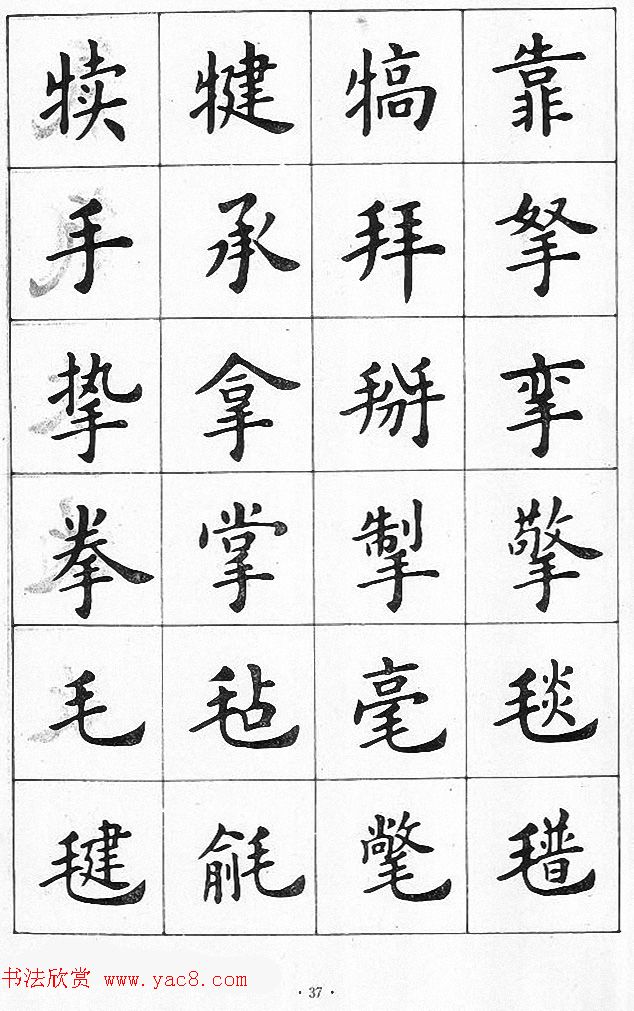 犊犍犒靠
手承拜拏
挚拿掰挛
拳掌掣擎
毛毡毫毯
毽毹氅氆
书法欣赏 www.yac8.com
·37·